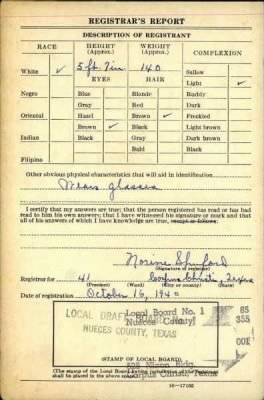 REGISTRAR'S REPORT
DESCRIPTION OF REGISTRANT
RACE HEIGHT (Approx.) WEIGHT (Approx.) COMPLEXION
White ✓ 5 ft. 7 in. 140 Sallow
EYES HAIR Light ✓
Negro Blue Blonde Ruddy
Gray Red Dark
Oriental Hazel Brown ✓ Freckled
Brown ✓ Black Light brown
Indian Black Gray Dark brown
Bald Black
Filipino
Other obvious physical characteristics that will aid in identification
Wears glasses
I certify that my answers are true; that the person registered has read or has had
read to him his own answers; that I have witnessed his signature or mark and that
all of his answers of which I have knowledge are true, except as follows:
(Signature of registrar)
Registrar for 41 Corpus Christi, Texas
(Precinct) (Ward) (City or county) (State)
Date of registration October 16, 1940
LOCAL DRAFT BOARD
NUECES COUNTY, TEXAS
Local Board No. 1 85
Nueces County 355
001
Nixon Bldg.
Corpus Christi, Texas
(STAMP OF LOCAL BOARD)
(The stamp of the Local Board having jurisdiction of the registrant
shall be placed in the above space.)